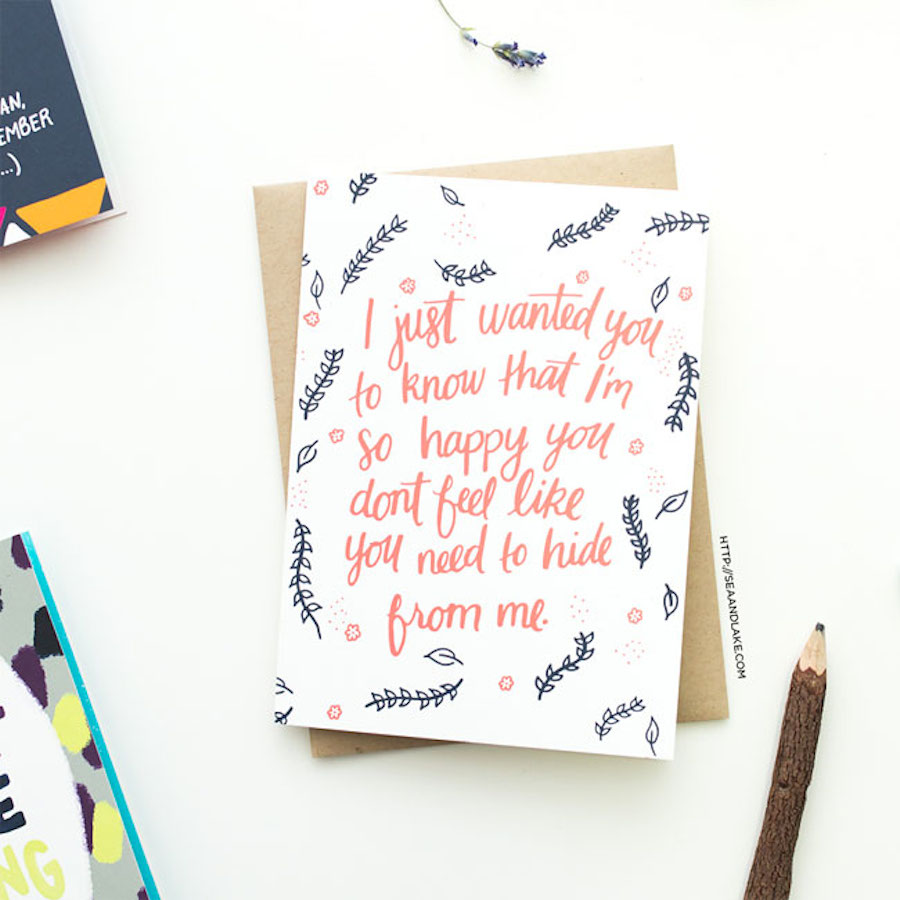 I just wanted you
to know that I'm
so happy you
dont feel like
you need to hide
from me.
HTTP://SEAANDLAKE.COM
...)
NG